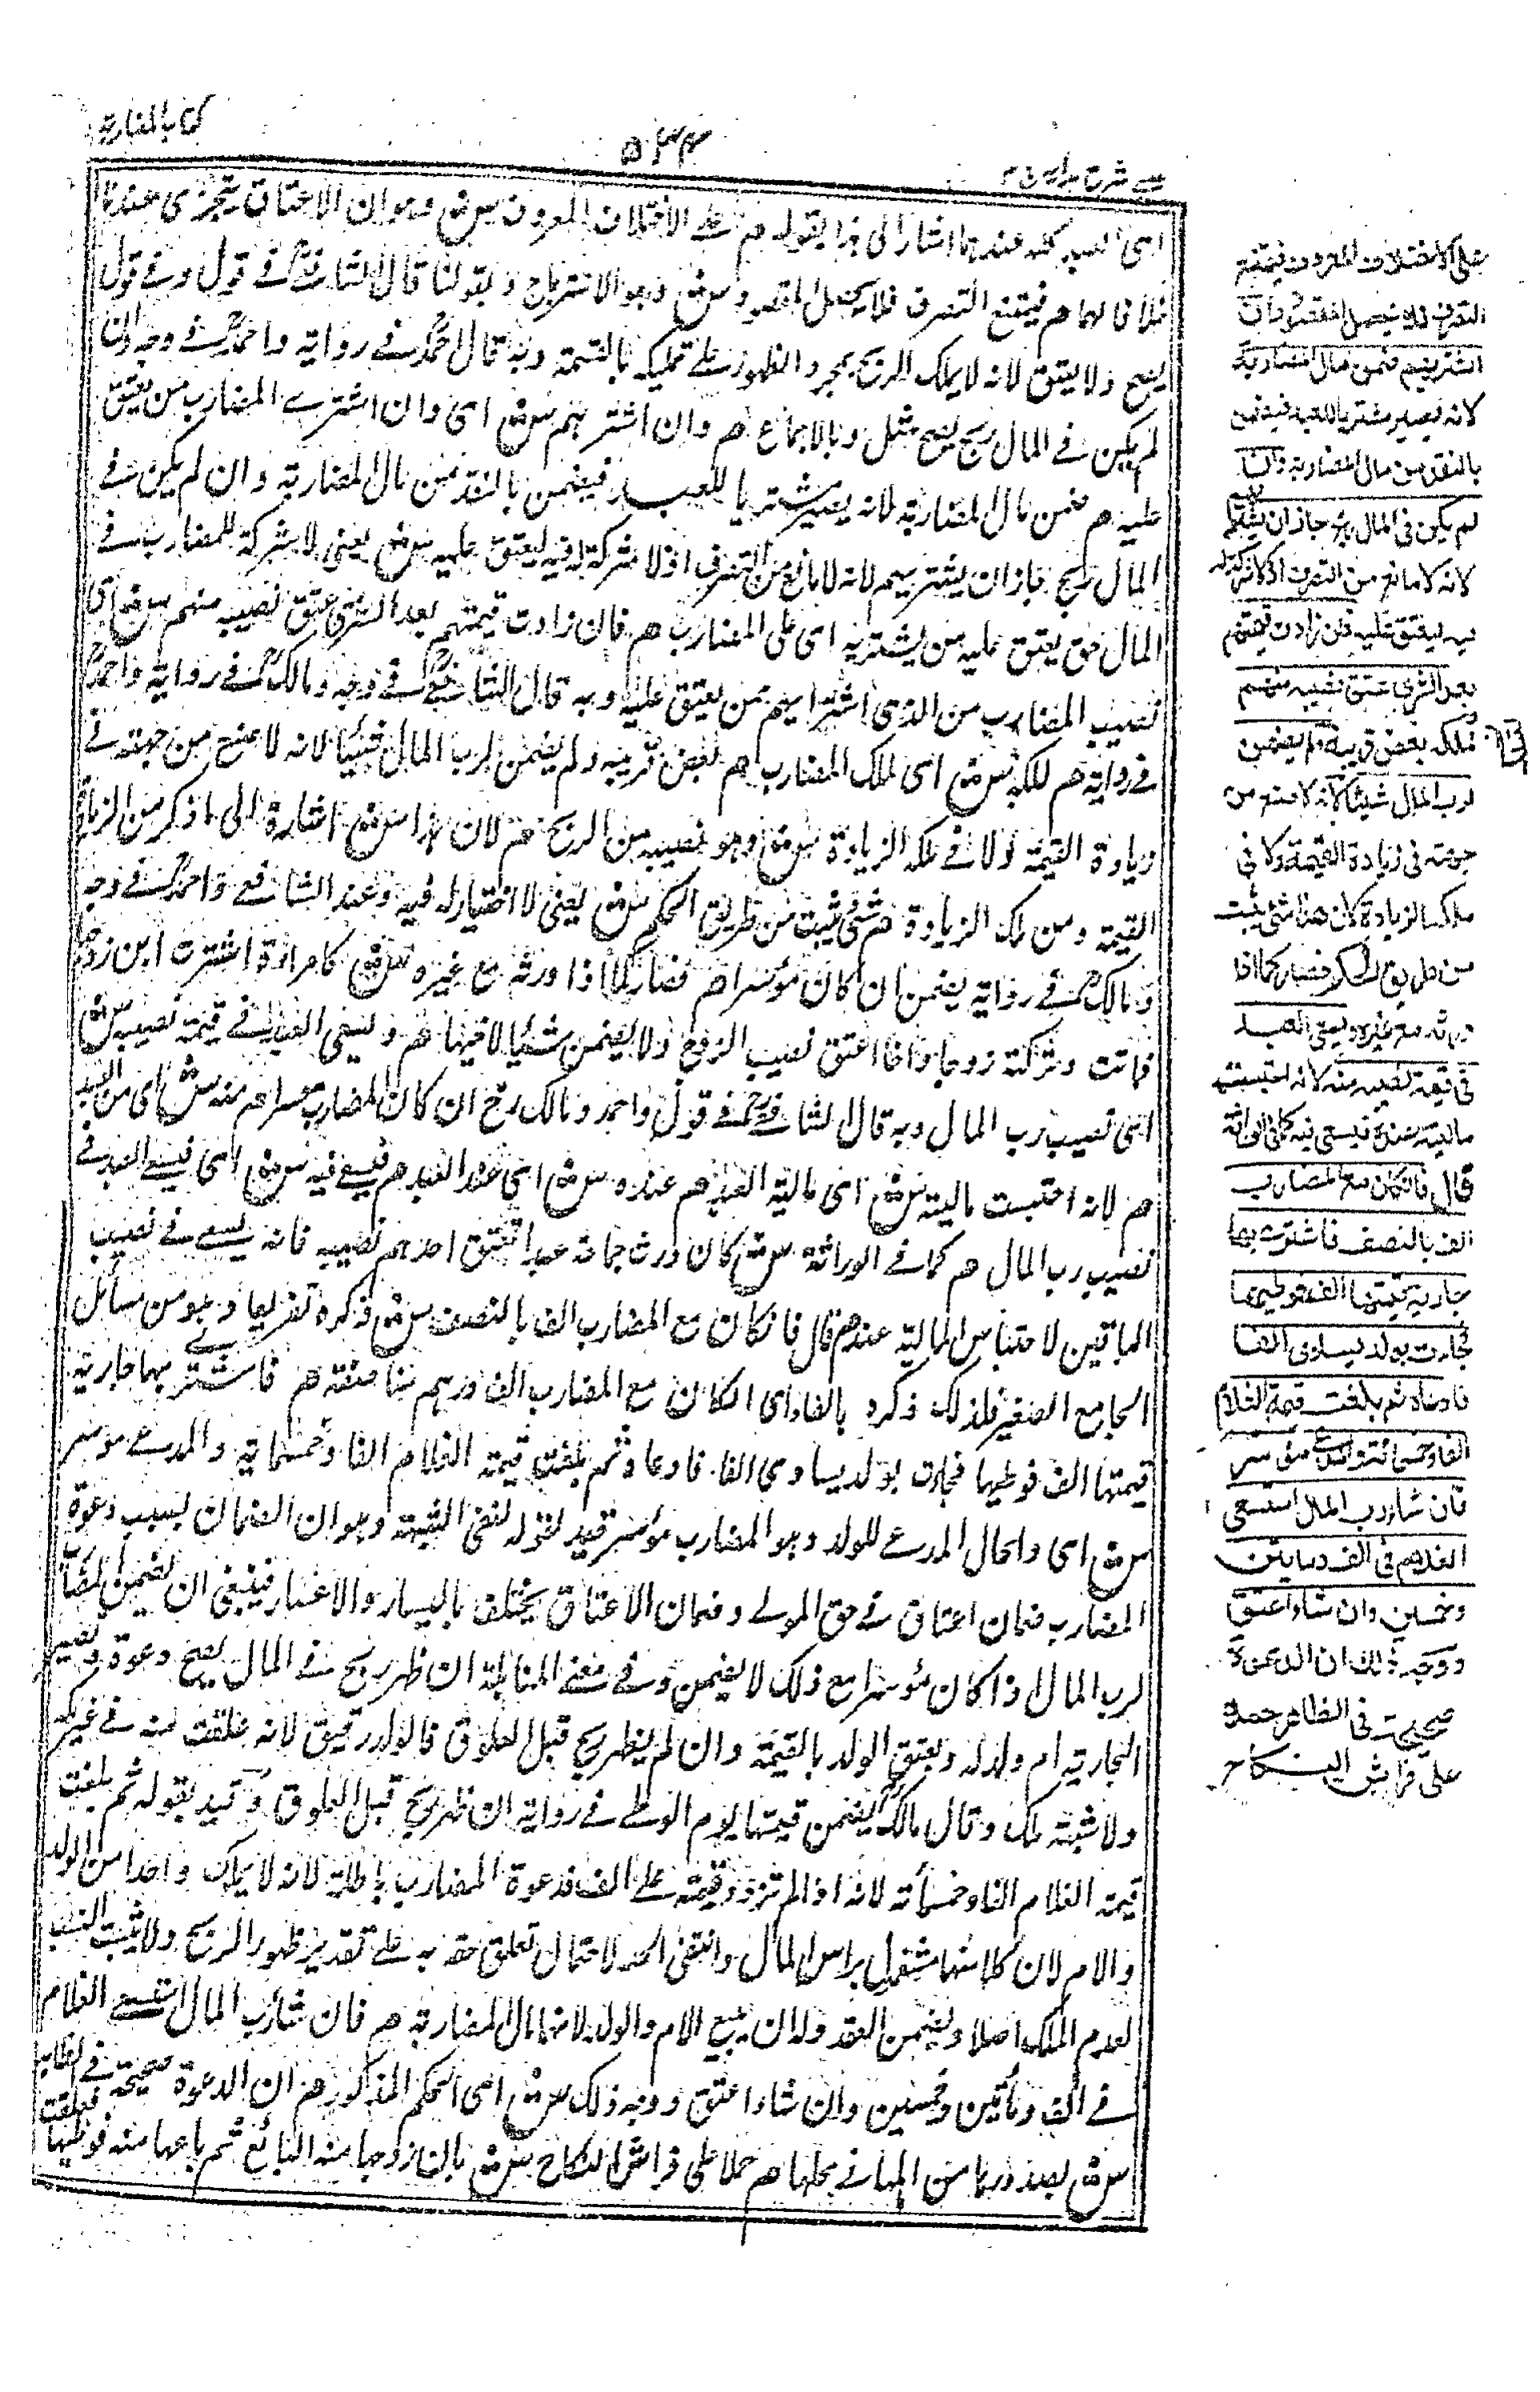 كتاب المضاربة
٥٣٤
عينى شرح هداية ج ٣
اى العبد كله عندهما اشار الى هذا بقوله هم على الاختلاف المعروف س ش وهو ان الاعتاق يتجزى عنده
خلافا لهما هم فيمتنع التصرف فلا يحصل المقصود س ش وهو الاسترباح وبقولنا قال الشافعي فى قول وفى قول
يصح ولا يعتق لانه لا يملك الربح بمجرد الظهور على تمليكه بالقسمة وبه قال احمد فى رواية واحمد فى وجه
لم يكن فى المال ربح يصح مثل وبالاجماع هم وان اشتريهم س ش اى وان اشترى المضارب من يعتق
عليه هم ضمن مال المضاربة لانه يصير مشتريا للعبد فيضمن بالنقد من مال المضاربة وان لم يكن فى
المال ربح جاز ان يشتريهم لانه لا مانع من التصرف اذ لا شركة له فيه ليعتق عليه س ش يعنى لا شركة للمضارب فى
المال حتى يعتق عليه من يشتريه اى على المضارب هم فان زادت قيمتهم بعد الشرى عتق نصيبه منهم س ش اى
نصيب المضارب من الذى اشتراهم ممن يعتق عليه وبه قال الشافعي فى وجه ومالك فى رواية واحمد
فى رواية هم لملكه س ش اى لملك المضارب هم بعض قريبه ولم يضمن لرب المال شيئا لانه لا صنع من جهته فى
زيادة القيمة ولا فى ملكه الزيادة س ش وهو نصيبه من الربح هم لان هذا س ش اشارة الى ما ذكر من الزيادة
القيمة ومن ملك الزيادة هم شئ يثبت من طريق الحكم س ش يعنى لا اختيار له فيه وعند الشافعي واحمد فى وجه
ومالك فى رواية يضمن ان كان موسرا هم فصار كما اذا ورثه مع غيره س ش كامرأة اشترت ابن زوجها
فماتت وتركت زوجا واخا عتق نصيب الزوج ولا يضمن شيئا لاخيها هم ويسعى العبد فى قيمة نصيبه س ش
اى نصيب رب المال وبه قال الشافعي فى قول واحمد ومالك رح ان كان المضارب معسرا هم منه س ش اى من العبد
هم لانه احتبست ماليته س ش اى مالية العبد هم عنده س ش اى عند العبد هم فيسعى فيه س ش اى فيسعى العبد فى
نصيب رب المال هم كما فى الوراثة س ش كان ورث جماعة عبدا فعتق احدهم نصيبه فانه يسعى فى نصيب
الباقين لاحتباس المالية عندهم قال فان كان مع المضارب الف بالنصف س ش ذكره تفريعا وهو من مسائل
الجامع الصغير فلذلك ذكره بالفاء اى ان كان مع المضارب الف درهم مناصفة هم فاشترى بها جارية
قيمتها الف فوطيها فجاءت بولد يساوى الفا فادعاه ثم بلغت قيمة الغلام الفا وخمسمائة والمدعى موسر
س ش اى والحال المدعى للولد وهو المضارب موسر قيد لقوله لنفى الشبهة وهو ان الضمان بسبب دعوة
المضارب ضمان اعتاق فى حق المولى وضمان الاعتاق يختلف باليسار والاعسار فينبغى ان يضمن المضارب
لرب المال اذا كان موسرا مع ذلك لا يضمن وفى مغنى الحنابلة ان ظهر ربح فى المال يصح دعوة وتصير
الجارية ام ولد له ويعتق الولد بالقيمة وان لم يظهر ربح قبل العلوق فالولد رقيق لانه علقت منه فى غير ملكه
ولا شبهة ملك وقال مالك يضمن قيمتها يوم الوطى فى رواية ان ظهر ربح قبل العلوق وقيد بقوله ثم بلغت
قيمة الغلام الفا وخمسمائة لانه اذا لم تزد قيمته على الف فدعوة المضارب باطلة لانه لا يملك واحدا من الولد
والام لان كلا منهما مشغول براس المال وانتفى الحد لاحتمال تعلق حقه به على تقدير ظهور الربح ولا يثبت النسب
لعدم الملك اصلا ويضمن العقر وله ان يبيع الام والولد لانهما مال المضاربة هم فان شاء رب المال استسعى الغلام
فى الف ومأتين وخمسين وان شاء اعتق ووجه ذلك س ش اى الحكم المذكور هم ان الدعوة صحيحة فى الظاهر
س ش لصدورها من اهلها فى محلها هم حملا على فراش النكاح س ش بان زوجها منه البائع ثم باعها منه فوطيها فعلقت
على الاختلاف المعروف فيمتنع
التصرف فلا يحصل المقصود وان
اشتريهم ضمن مال المضاربة
لانه يصير مشتريا للعبد فيضمن
بالنقد من مال المضاربة وان
لم يكن فى المال ربح جاز ان يشتريهم
لانه لا مانع من التصرف اذ لا شركة له
فيه ليعتق عليه فان زادت قيمتهم
بعد الشرى عتق نصيبه منهم
لملكه بعض قريبه ولم يضمن
لرب المال شيئا لانه لا صنع من
جهته فى زيادة القيمة ولا فى
ملكه الزيادة لان هذا شئ يثبت
من طريق الحكم فصار كما اذا
ورثه مع غيره ويسعى العبد
فى قيمة نصيبه منه لانه احتبست
ماليته عنده فيسعى فيه كما فى الوراثة
قال فان كان مع المضارب
الف بالنصف فاشترى بها
جارية قيمتها الف فوطيها
فجاءت بولد يساوى الفا
فادعاه ثم بلغت قيمة الغلام
الفا وخمسمائة والمدعى موسر
فان شاء رب المال استسعى
الغلام فى الف ومايتين
وخمسين وان شاء اعتق
ووجه ذلك ان الدعوة
صحيحة فى الظاهر حملا
على فراش النكاح